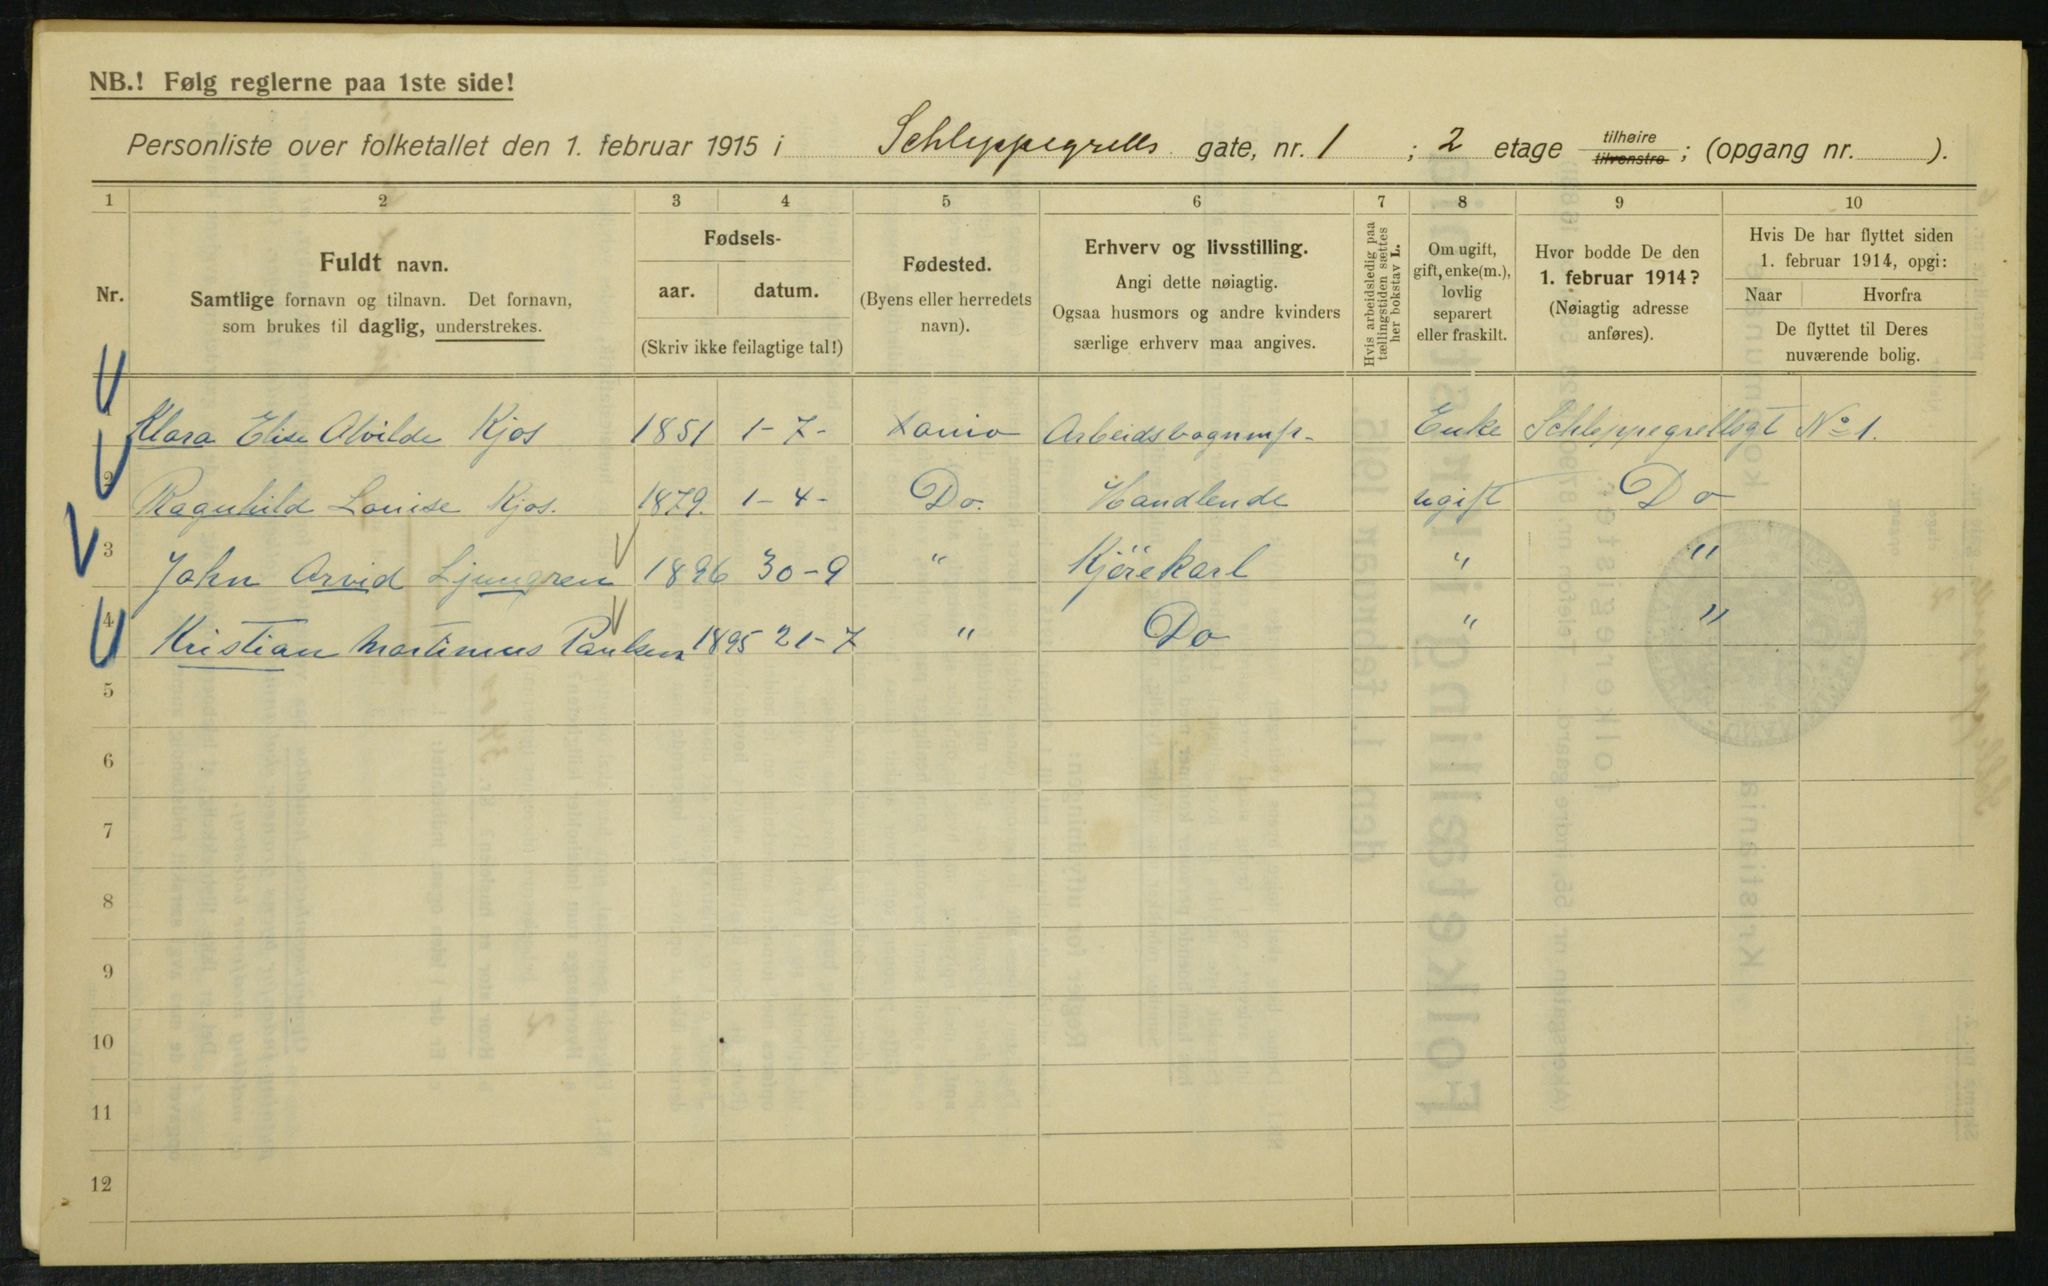 NB.! Følg reglerne paa 1ste side!
Personliste over folketallet den 1. februar 1915 i Schleppegrells gate, nr. 1 ; 2 etage tilhøire tilvenstre ; (opgang nr. ).
1 2 3 4 5 6 7 8 9 10
Nr.
Fuldt navn.
Samtlige fornavn og tilnavn. Det fornavn,
som brukes til daglig, understrekes.
Fødsels-
aar. datum.
(Skriv ikke feilagtige tal!)
Fødested.
(Byens eller herredets
navn).
Erhverv og livsstilling.
Angi dette nøiagtig.
Ogsaa husmors og andre kvinders
særlige erhverv maa angives.
Hvis arbeidsledig paa
tællingstiden sættes
her bokstav L.
Om ugift,
gift, enke(m.),
lovlig
separert
eller fraskilt.
Hvor bodde De den
1. februar 1914?
(Nøiagtig adresse
anføres).
Hvis De har flyttet siden
1. februar 1914, opgi:
Naar Hvorfra
De flyttet til Deres
nuværende bolig.
1 Klara Elise Alvilde Kjos 1851 1-7- Enke Schleppegrellsgt No 1.
2 Ragnhild Louise Kjos. 1879. 1-4- Do. Handlende ugift Do
3 John Arvid Ljungren 1896 30-9 " Kjörekarl " "
4 Kristian Martinius Paulsen 1895 21-7 " Do " "
5
6
7
8
9
10
11
12